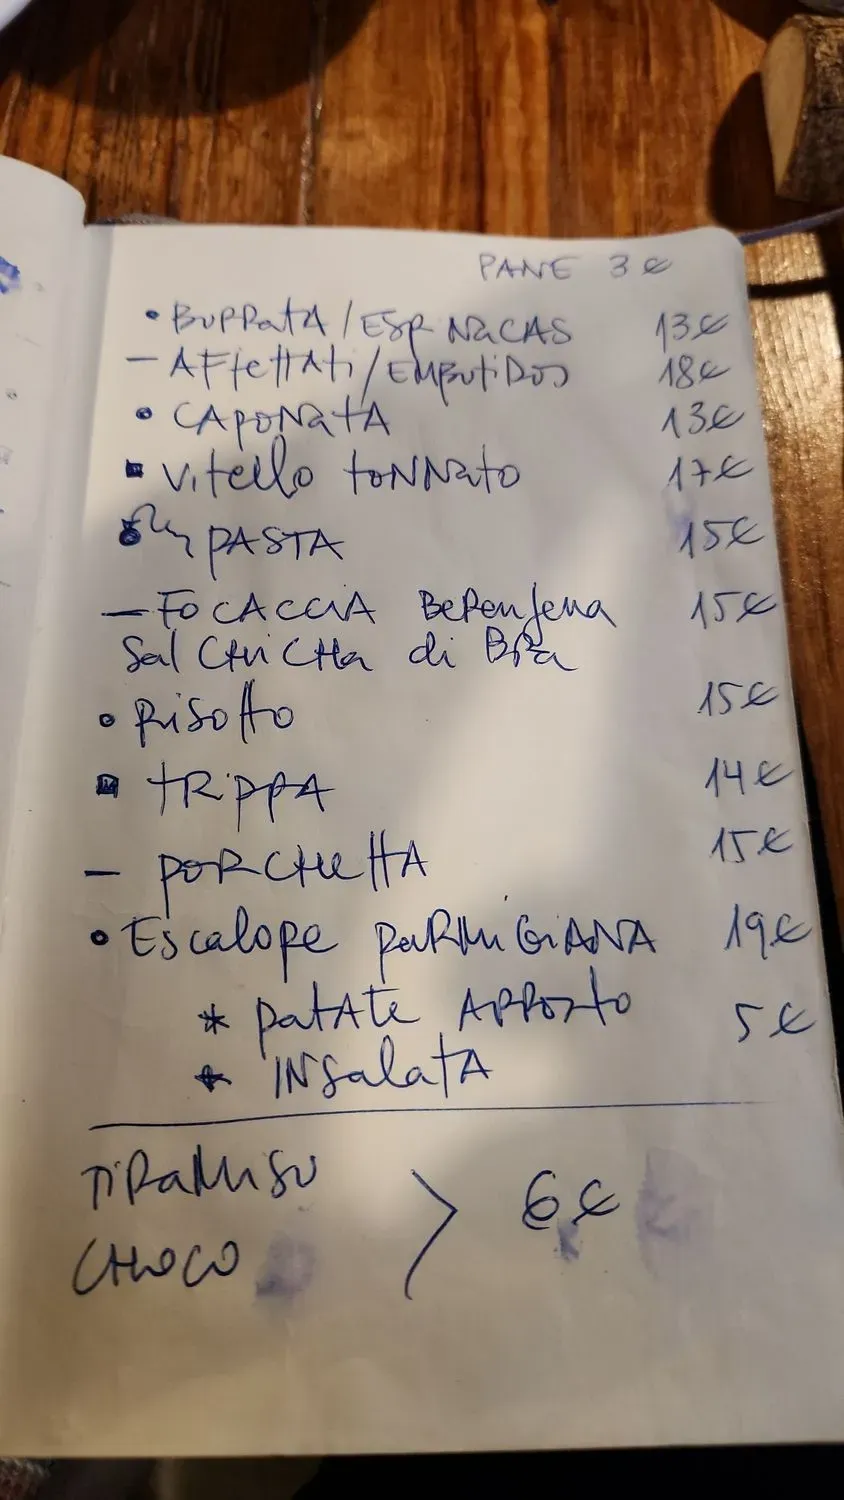 PANE 3€
• BURRATA / ESPINACAS 13€
– AFFETTATI / EMBUTIDOS 18€
• CAPONATA 13€
▪ VITELLO TONNATO 17€
PASTA 15€
– FOCACCIA BERENJENA 15€
SALCHICHA di BRA
• RISOTTO 15€
▪ TRIPPA 14€
– PORCHETTA 15€
• Escalope PARMIGIANA 19€
* PATATE ARROSTO 5€
* INSALATA
TIRAMISU
CHOCO > 6€